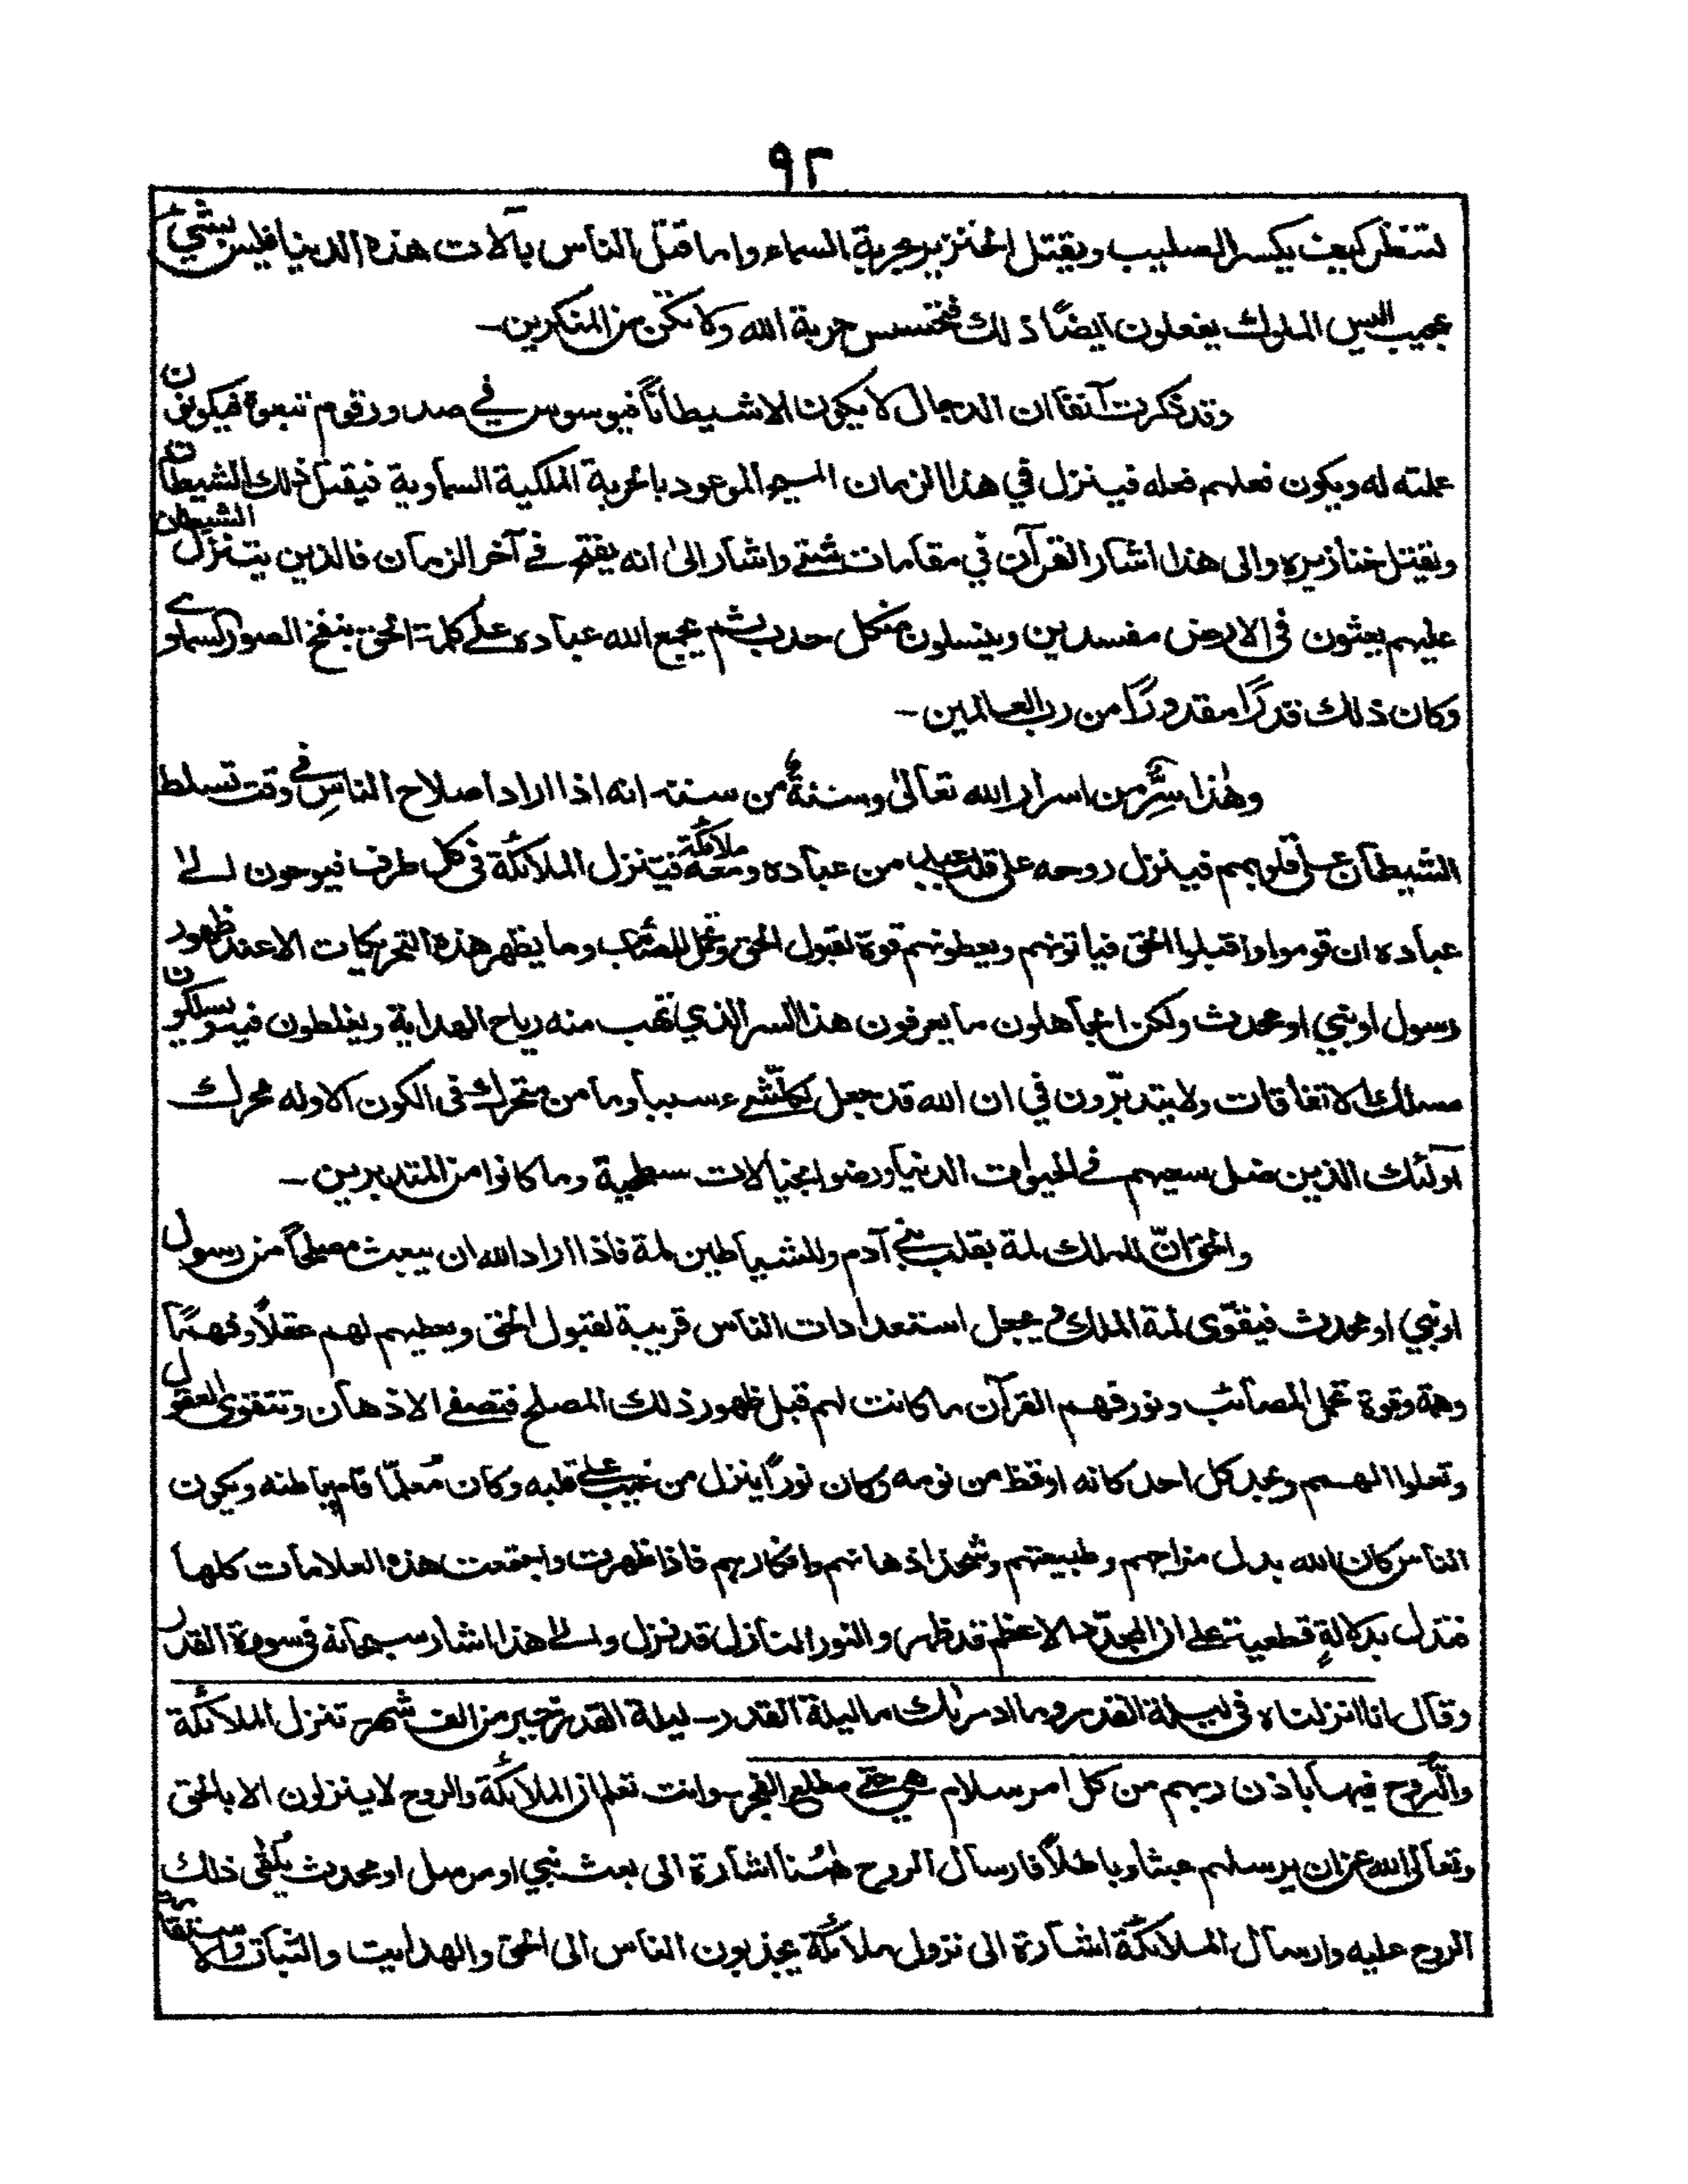 ٩٢
لتنظر كيف يكسر الصليب ويقتل الخنزير بحربة السماء واما قتل الناس بآلات هذه الدنيا فليس بشيء
عجيب اليس الملوك يفعلون ايضًا ذلك فتحسس حربة الله ولا تكن من المنكرين۔
وقد ذكرت آنفا ان الدجال لا يكون الا شيطانًا فيوسوس في صدور قوم تبعوه فيكونون
عملته له ويكون فعلهم فعله فينزل في هذا الزمان المسيح الموعود بالحربة الملكية السماوية فيقتل ذلك الشيطان
ويقتل خنازيره والى هذا اشار القرآن في مقامات شتى واشار الى انه يفتح في آخر الزمان فالذين يتنزل الشيطان
عليهم يعثون في الارض مفسدين وينسلون من كل حدب ثم يجمع الله عباده على كلمة الحق بنفخ الصور السماوى
وكان ذلك قدرًا مقدورًا من رب العالمين۔
وهٰذا سرٌّ من اسرار الله تعالىٰ وسنةٌ من سننه انه اذا اراد اصلاح الناسِ في وقت تسلط
الشيطان على قلوبهم فينزل روحه على قلب عبد من عباده ومعه ملائكة فيتنزل الملائكة في كل طرف فيوحون الى
عباده ان قوموا واقبلوا الحق فياتونهم ويعطونهم قوة لقبول الحق وتحمل المصائب وما يظهر هذه التحريكات الا عند ظهور
رسول او نبي او محدث ولكن الجاهلون ما يعرفون هذا السر الذي تهب منه رياح الهداية ويغلطون فيه ويسلكون
مسلك الاتفاقات ولا يتدبرون في ان الله قد جعل لكل شيء سببا وما من متحرك في الكون الا وله محرك
اولئك الذين ضل سعيهم في الحيوٰة الدنيا ورضوا بخيالات سطحية وما كانوا من المتدبرين۔
والحق انّ للملك لمة بقلب بني آدم وللشياطين لمة فاذا اراد الله ان يبعث مصلحًا من رسول
او نبي او محدث فيقوّى لمة الملك ويجعل استعدادات الناس قريبة لقبول الحق ويعطيهم لهم عقلًا وفهمًا
وهمة وقوة تحمل المصائب ونور فهم القرآن ما كانت لهم قبل ظهور ذلك المصلح فتصفى الاذهان وتتقوى العقول
وتعلوا الهمم ويجد كل احد كانه اوقظ من نومه وكان نورًا ينزل من غيب على قلبه وكان مُعلمًا قام بباطنه ويكون
الناس كان الله بدل مزاجهم وطبيعتهم وشحذ اذهانهم وافكارهم فاذا ظهرت واجتمعت هذه العلامات كلها
فتدل بدلالةٍ قطعية على ان المجدّد الاعظم قد ظهر والنور النازل قد نزل والى هذا اشار سبحانه في سورة القدر
وقال انا انزلناه في ليلة القدر وما ادرٰىك ما ليلة القدر۔ ليلة القدر خير من الف شهر تنزل الملائكة
والرُّوح فيها باذن ربهم من كل امر سلام هي حتى مطلع الفجر وانت تعلم ان الملائكة والروح لا ينزلون الا بالحق
وتعالى الله عن ان يرسلهم عبثا وباطلًا فارسال الروح هٰهُنا اشارة الى بعث نبي او مرسل او محدث يُلقٰى ذلك
الروح عليه وارسال الملائكة اشارة الى نزول ملائكة يجذبون الناس الى الحق والهداية والثبات والاستقامة